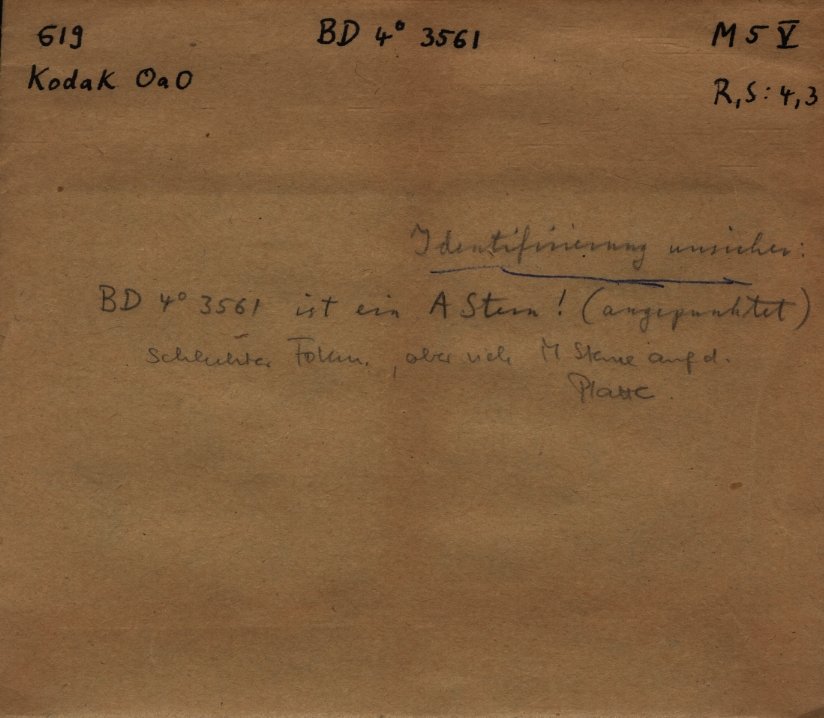 619 BD 4° 3561 M 5 V
Kodak OaO R,S: 4,3
Identifizierung unsicher:
BD 4° 3561 ist ein A Stern! (angepunktet)
Schlechter Fokus, aber viele M Sterne auf d.
Platte.